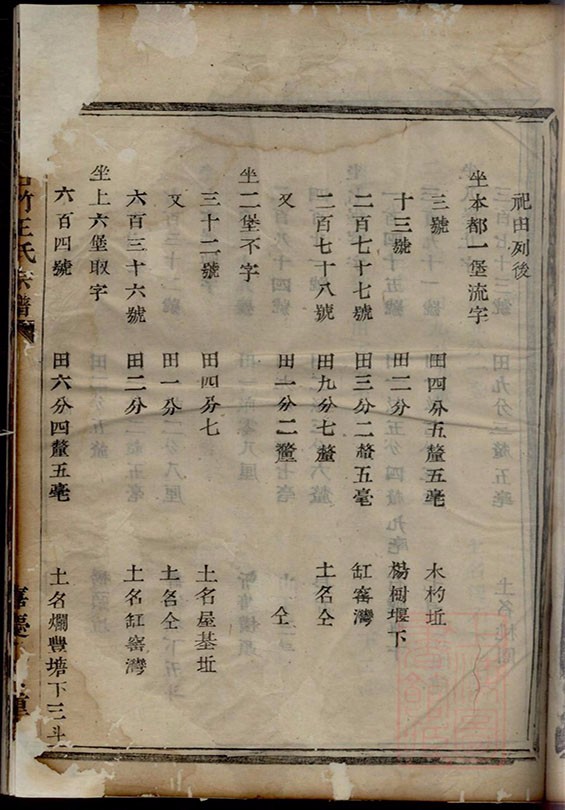 祀田列後
坐本都一堡流字
三號 田四分五釐五毫 木杓坵
十三號 田二分 楊樹堰下
二百七十七號 田三分二釐五毫 缸窰灣
二百七十八號 田九分七釐 土名仝
又 田一分二釐 仝
坐二堡不字
三十二號 田四分七 土名屋基坵
又 田一分 土名仝
六百三十六號 田二分 土名缸窰灣
坐上六堡取字
六百四號 田六分四釐五毫 土名爛豐塘下三斗
竹王氏宗譜